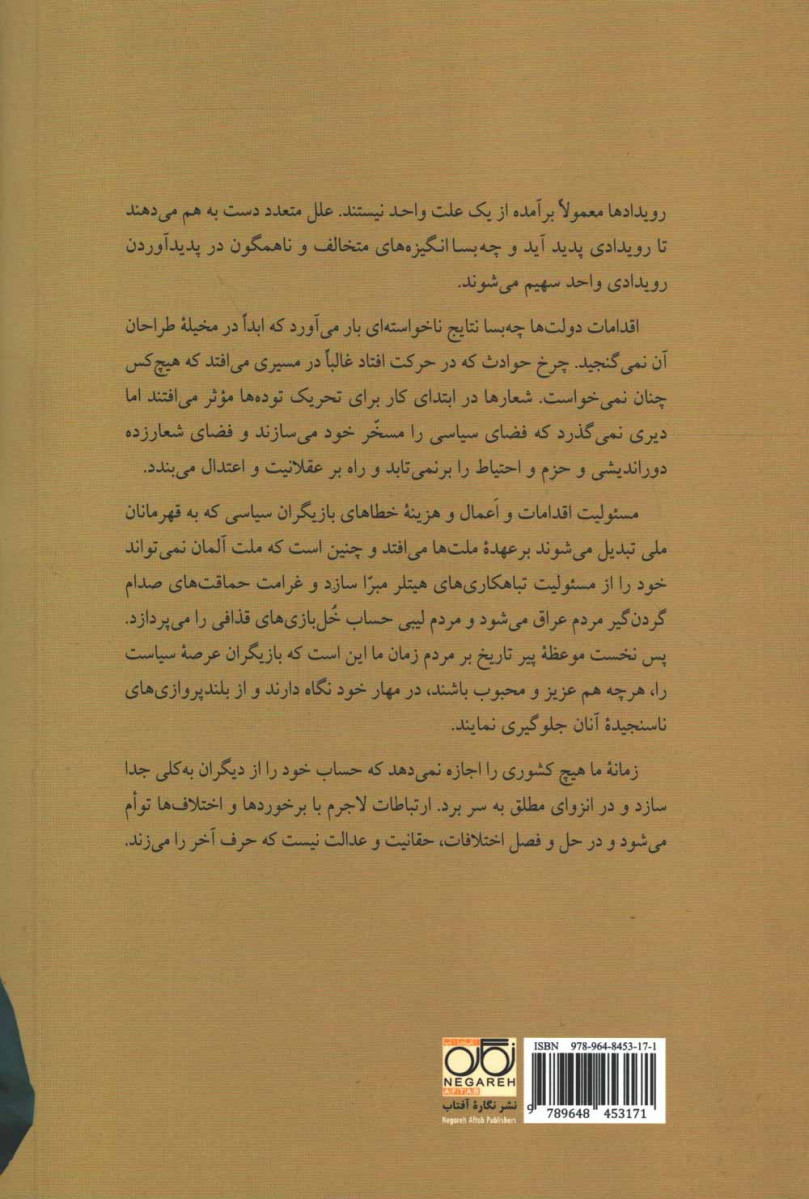 رویدادها معمولاً برآمده از یک علت واحد نیستند. علل متعدد دست به هم می‌دهند
تا رویدادی پدید آید و چه‌بسا انگیزه‌های متخالف و ناهمگون در پدیدآوردن
رویدادی واحد سهیم می‌شوند.
اقدامات دولت‌ها چه‌بسا نتایج ناخواسته‌ای بار می‌آورد که ابداً در مخیلۀ طراحان
آن نمی‌گنجید. چرخ حوادث که در حرکت افتاد غالباً در مسیری می‌افتد که هیچ‌کس
چنان نمی‌خواست. شعارها در ابتدای کار برای تحریک توده‌ها مؤثر می‌افتند اما
دیری نمی‌گذرد که فضای سیاسی را مسخّر خود می‌سازند و فضای شعارزده
دوراندیشی و حزم و احتیاط را برنمی‌تابد و راه بر عقلانیت و اعتدال می‌بندد.
مسئولیت اقدامات و اَعمال و هزینۀ خطاهای بازیگران سیاسی که به قهرمانان
ملی تبدیل می‌شوند برعهدۀ ملت‌ها می‌افتد و چنین است که ملت آلمان نمی‌تواند
خود را از مسئولیت تباهکاری‌های هیتلر مبرّا سازد و غرامت حماقت‌های صدام
گردن‌گیر مردم عراق می‌شود و مردم لیبی حساب خُل‌بازی‌های قذافی را می‌پردازد.
پس نخست موعظۀ پیر تاریخ بر مردم زمان ما این است که بازیگران عرصۀ سیاست
را، هرچه هم عزیز و محبوب باشند، در مهار خود نگاه دارند و از بلندپروازی‌های
ناسنجیدۀ آنان جلوگیری نمایند.
زمانۀ ما هیچ کشوری را اجازه نمی‌دهد که حساب خود را از دیگران به‌کلی جدا
سازد و در انزوای مطلق به سر برد. ارتباطات لاجرم با برخوردها و اختلاف‌ها توأم
می‌شود و در حل و فصل اختلافات، حقانیت و عدالت نیست که حرف آخر را می‌زند.
نگاره
NEGAREH
AFTAB
نشر نگارۀ آفتاب
Negareh Aftab Publishers
ISBN 978-964-8453-17-1
9 789648 453171